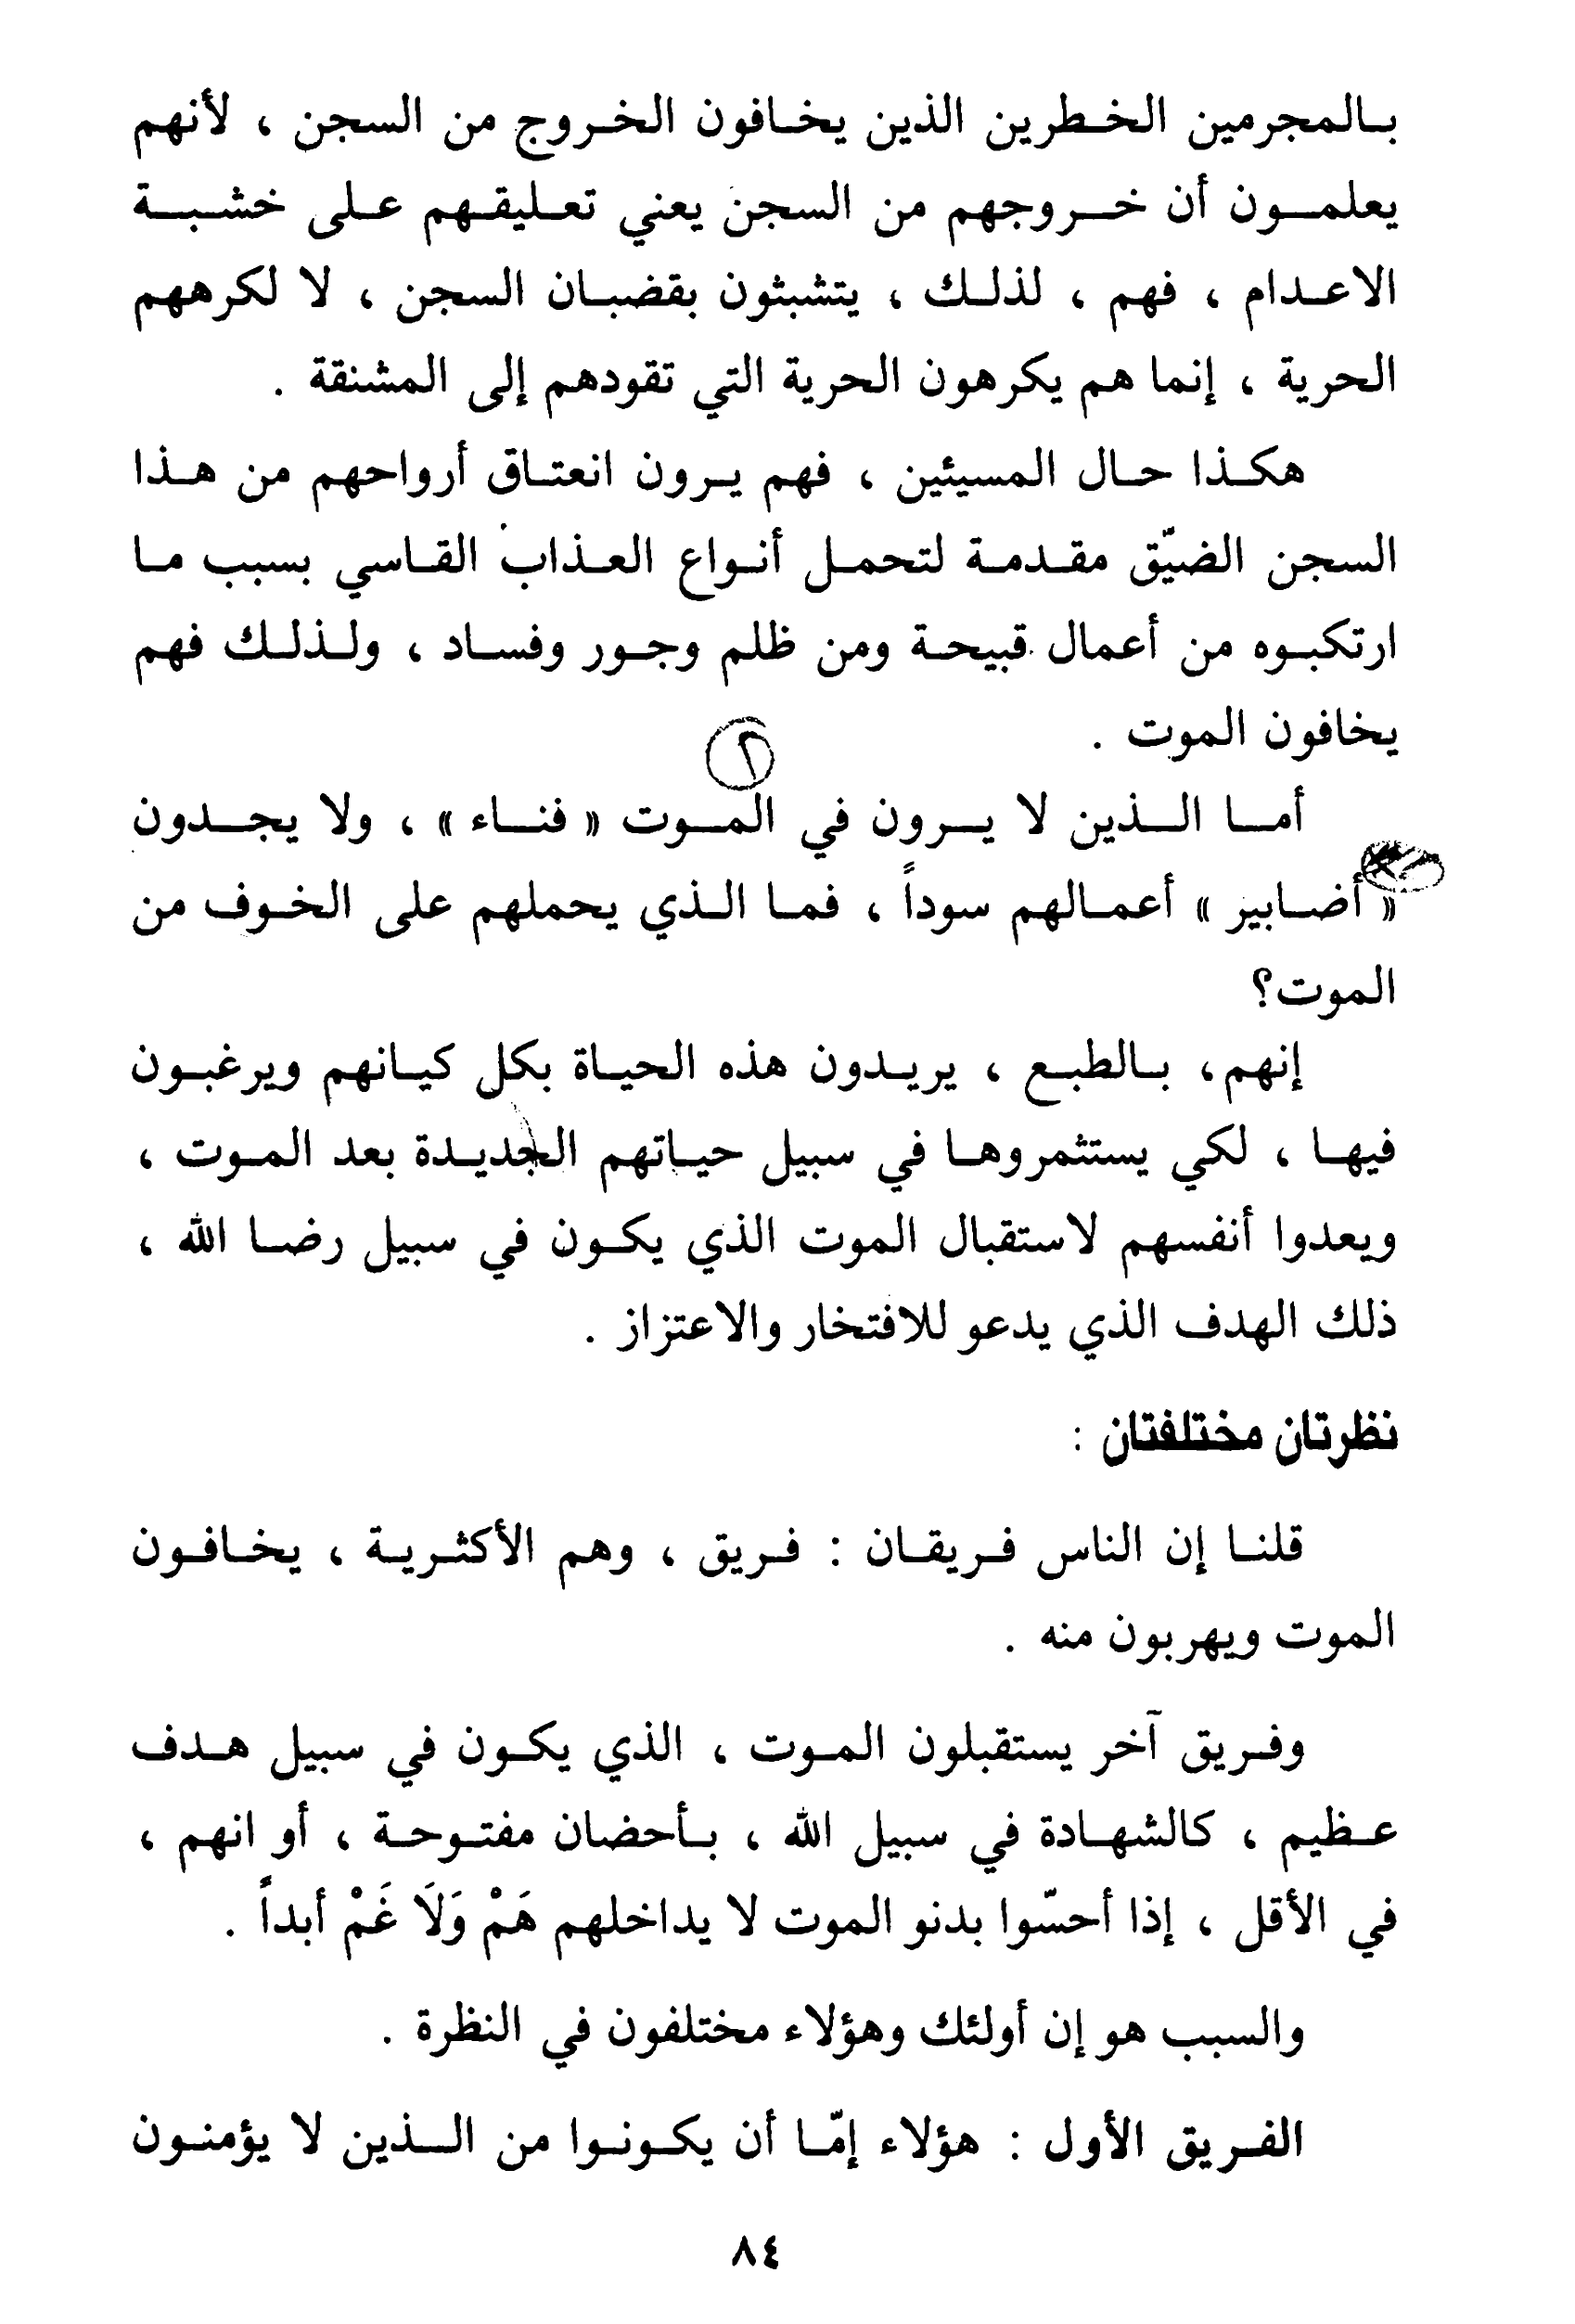 بالمجرمين الخطرين الذين يخافون الخروج من السجن ، لأنهم
يعلمون أن خروجهم من السجن يعني تعليقهم على خشبة
الاعدام ، فهم ، لذلك ، يتشبثون بقضبان السجن ، لا لكرههم
الحرية ، إنما هم يكرهون الحرية التي تقودهم إلى المشنقة .
هكذا حال المسيئين ، فهم يرون انعتاق أرواحهم من هذا
السجن الضيّق مقدمة لتحمل أنواع العذاب القاسي بسبب ما
ارتكبوه من أعمال قبيحة ومن ظلم وجور وفساد ، ولذلك فهم
يخافون الموت .
٢
أما الذين لا يرون في الموت « فناء » ، ولا يجدون
« أضابير » أعمالهم سوداً ، فما الذي يحملهم على الخوف من
الموت؟
إنهم، بالطبع ، يريدون هذه الحياة بكل كيانهم ويرغبون
فيها ، لكي يستثمروها في سبيل حياتهم الجديدة بعد الموت ،
ويعدوا أنفسهم لاستقبال الموت الذي يكون في سبيل رضا الله ،
ذلك الهدف الذي يدعو للافتخار والاعتزاز .
نظرتان مختلفتان :
قلنا إن الناس فريقان : فريق ، وهم الأكثرية ، يخافون
الموت ويهربون منه .
وفريق آخر يستقبلون الموت ، الذي يكون في سبيل هدف
عظيم ، كالشهادة في سبيل الله ، بأحضان مفتوحة ، أو انهم ،
في الأقل ، إذا أحسّوا بدنو الموت لا يداخلهم هَمْ وَلَا غَمْ أبداً .
والسبب هو إن أولئك وهؤلاء مختلفون في النظرة .
الفريق الأول : هؤلاء إمّا أن يكونوا من الذين لا يؤمنون
٨٤